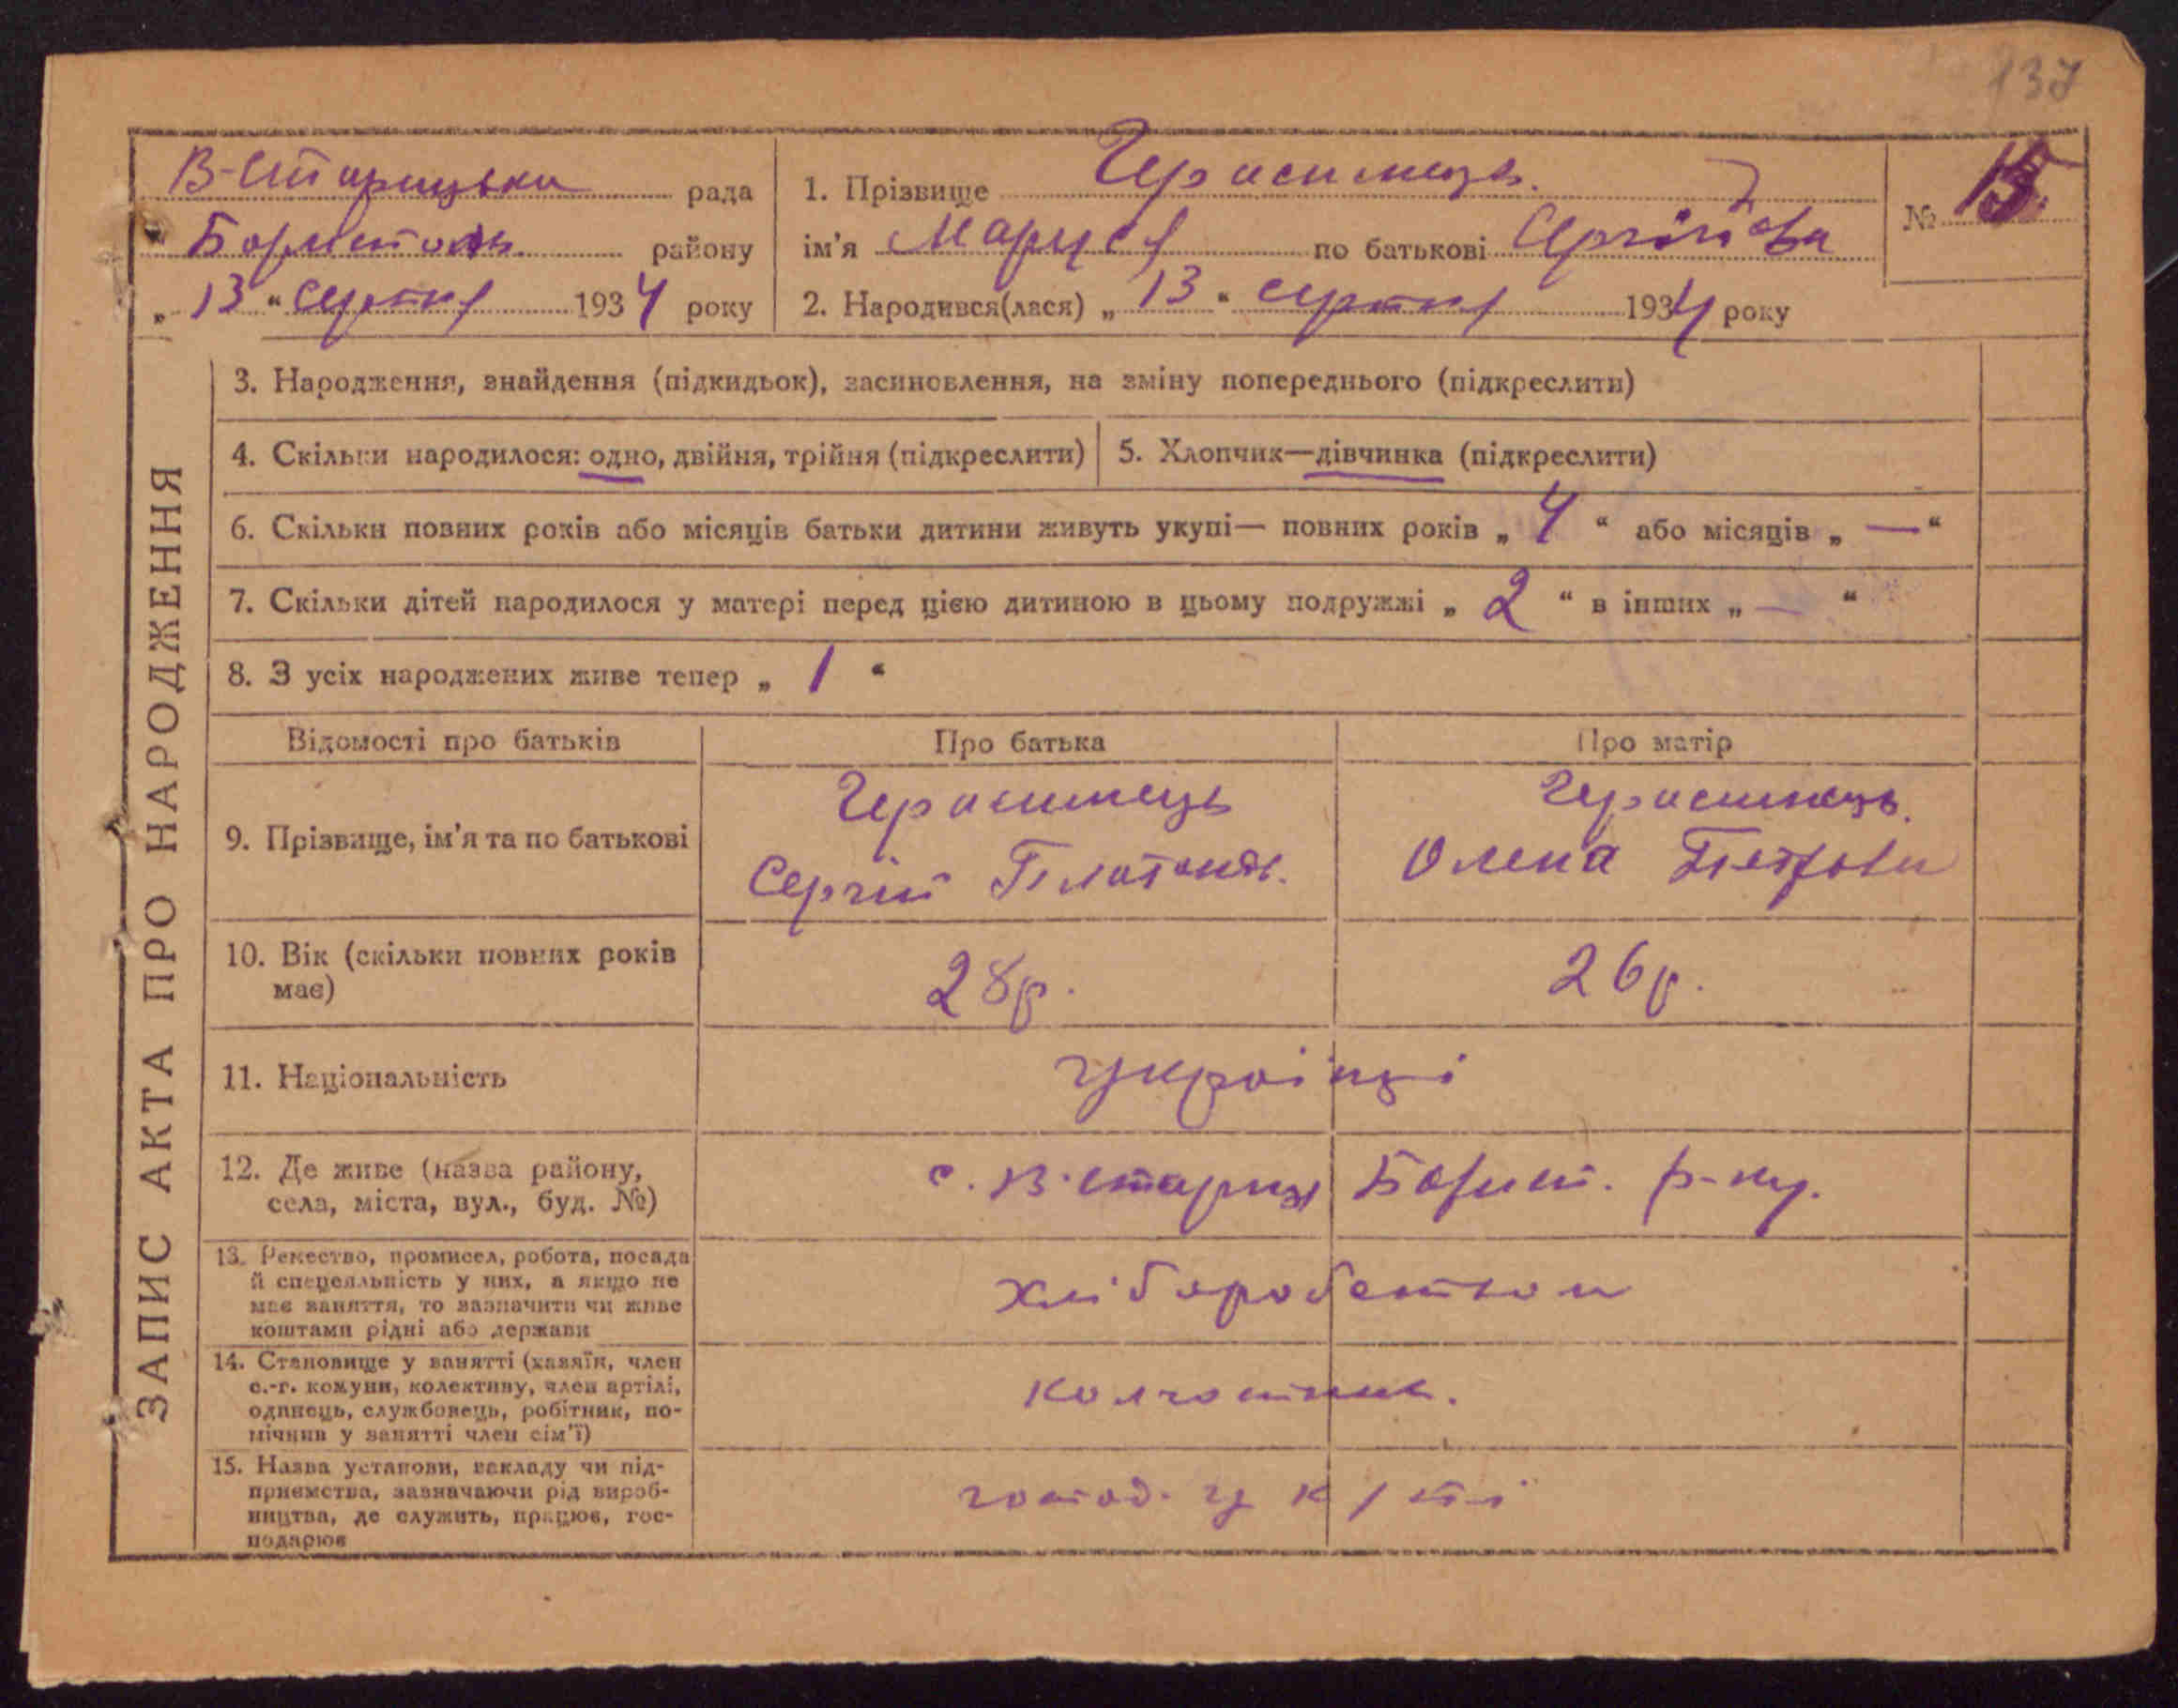 137
В-Старицька рада
Бориспольс. району
„ 13 “ серпня 1934 року
1. Прізвище Герасимець.
ім’я Маруся по батькові Сергійовна
2. Народився(лася) „ 13 “ серпня 1934 року
№ 15.
ЗАПИС АКТА ПРО НАРОДЖЕННЯ
3. Народження, знайдення (підкидьок), засиновлення, на зміну попереднього (підкреслити)
4. Скільки народилося: одно, двійня, трійня (підкреслити)
5. Хлопчик—дівчинка (підкреслити)
6. Скільки повних років або місяців батьки дитини живуть укупі— повних років „ 4 “ або місяців „ — “
7. Скільки дітей народилося у матері перед цією дитиною в цьому подружжі „ 2 “ в інших „ — “
8. З усіх народжених живе тепер „ 1 “
Відомості про батьків
Про батька
Про матір
9. Прізвище, ім’я та по батькові
Герасимець
Сергій Платонов.
Герасимець.
Олена Петровн
10. Вік (скільки повних років
має)
28р.
26р.
11. Національність
українці
12. Де живе (назва району,
села, міста, вул., буд. №)
с. В. Стариця Борисп. р-ну.
13. Ремество, промисел, робота, посада
й спецеяльність у них, а якщо не
має заняття, то зазначити чи живе
коштами рідні або держави
хліборобством
14. Становище у занятті (хазяїн, член
с.-г. комуни, колективу, член артілі,
одинець, службовець, робітник, по-
мічник у занятті член сім’ї)
колгоспник.
15. Назва установи, закладу чи під-
приємства, зазначаючи рід вироб-
ництва, де служить, працює, гос-
подарює
господ. у к/спі